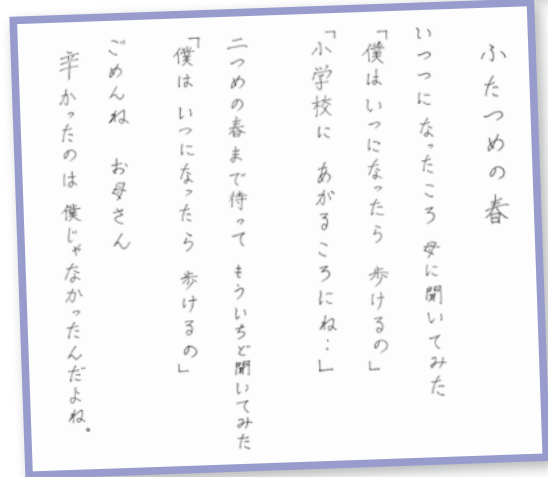 ふたつめの春
いつつになったころ 母に聞いてみた
「僕はいつになったら 歩けるの」
「小学校に あがるころにね…」
二つめの春まで待って もういちど聞いてみた
「僕は いつになったら 歩けるの」
ごめんね お母さん
辛かったのは 僕じゃなかったんだよね。